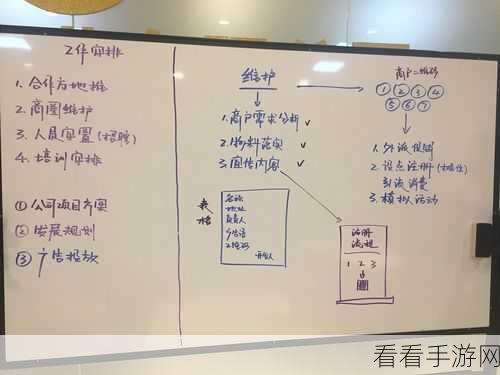 工作安排
1. 合作方地推
2. 商圈维护
3. 人员安置(招聘)
4. 培训安排
① 公司项目方案
② 发展规划
③ 广告投放
维护
1. 商户需求分析 ✓
2. 物料落实 ✓
3. 宣传内容 ✓
表格
名称
地址
负责人
电话
二维码
商户二维码
① ② ③ ④
⑤ ⑥ ⑦
1. 外派
2. 设点注册
引流消费
3. 模拟活动
注册
流程
1 2 3
看看手游网